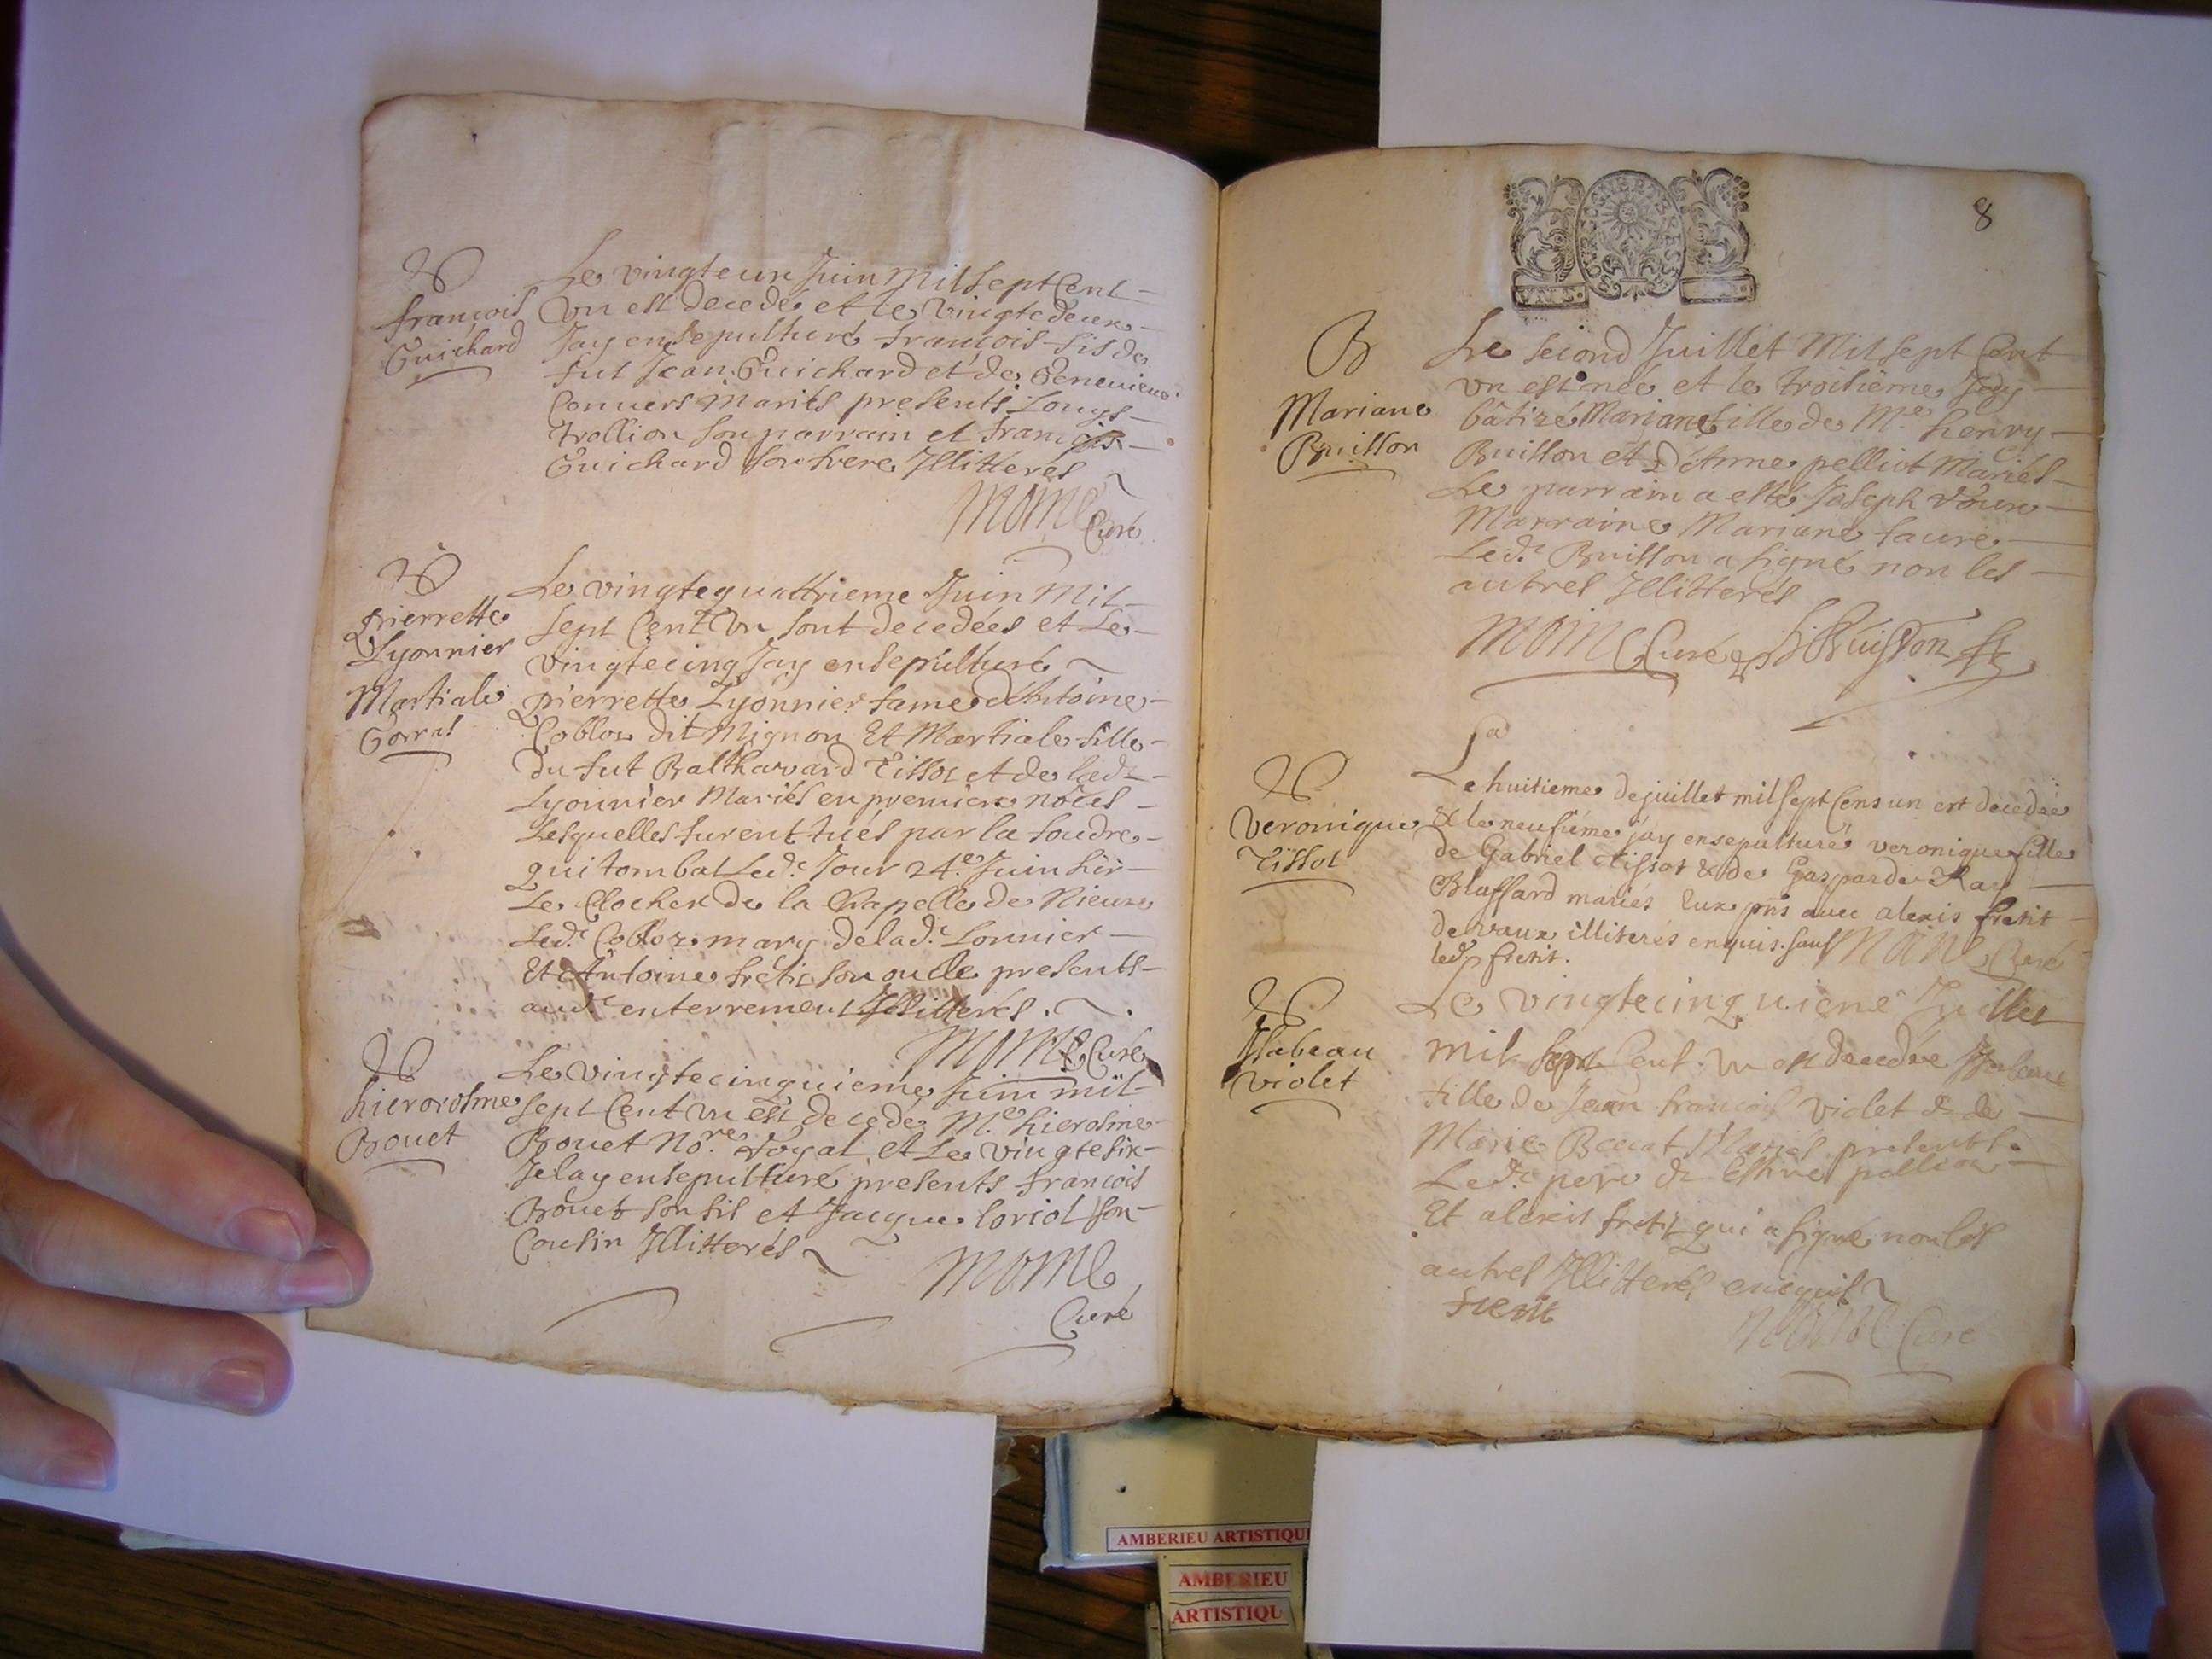 François
Guichard
Le vingteun Juin Mil Sept Cent
Un est decedé et le vingtedeux
Jay ensepulturé François fils de
fut Jean Guichard et de Genevieve
Convers Mariés presents Louys
trollion son parrain et François
Guichard son frere Illitterés
Mome Curé
pierrette
Lyonnier
Martiale
Le vingtequattrieme Juin Mil
Sept Cent Un sont decedées et Le
vingtecinq Jay ensepulturé
pierrette Lyonnier fame d'Antoine
dit Mignon Et Martiale fille
du fut Balthazard Tissot et de lad.
Lyonnier Mariés en premiere nôces
Lesquelles furent tués par la foudre
qui tomba Led.t Jour 24.e Juin sur
Le Clocher de la Chapelle de Nieure
Led.t mary de lad.t Lonnier
Et Antoine fretit son oncle presents
aud.t enterrement Illitterés.
Mome Curé
hierorosme
Bouet
Le vingtecinquieme Juin mil
Sept Cent Un est decedé M.e hierosme
Bouet No.re Royal et Le vingtesix
Je lay ensepulturé presents François
Bouet son fils et Jacque loriol son
Cousin Illitterés
Mome
Curé
8
B
Mariane
Buisson
Le second Juillet Mil Sept Cent
un est née et le troisième Jay
bâtizé Mariane fille de M.e henry
Buisson et d'Anne pelliot Mariés
Le parrain a esté Joseph
Marraine Mariane faure
Led.t Buisson a signé non les
autres Illitterés
Mome Curé h Buisson
Veronique
Tissot
Le huitieme de juillet mil sept cens un est decedée
& le neufième jay ensepulturé veronique fille
de Gabriel tissot & de Gasparde Rav
Blaffard mariés Eux pns avec alexis fretit
de vaux illiterés enquis sauf Mome Curé
led. fretit.
Isabeau
Violet
Le vingtecinquiene Juillet
mil Sept Cent Un est decedée Isabeau
fille de Jean françois Violet & de
Marie Mariés presents
Led.t pere &
Et alexis fretit qui a signé non les
autres Illitterés enquis
fretit
Mome Curé
AMBERIEU ARTISTIQU
AMBERIEU
ARTISTIQU